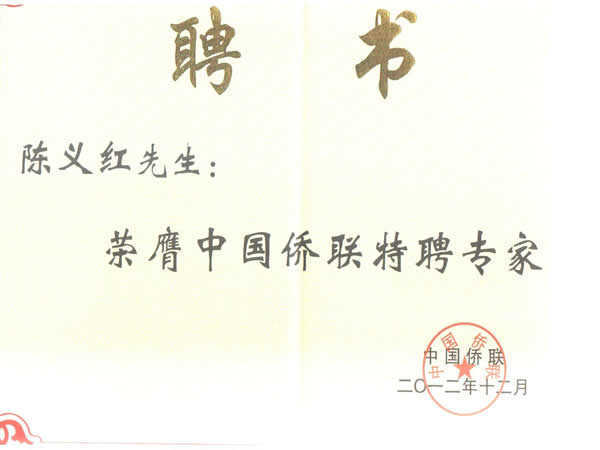 聘 书
陈义红先生：
荣膺中国侨联特聘专家
中国侨联
中国侨联
二〇一二年十二月